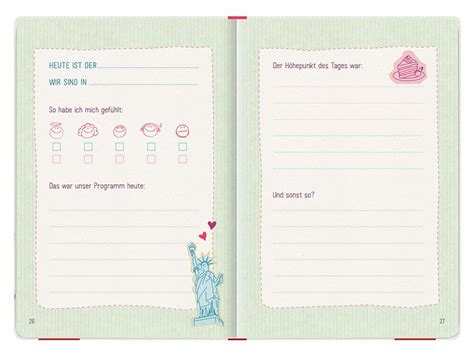 HEUTE IST DER
WIR SIND IN
So habe ich mich gefühlt:
Das war unser Programm heute:
26
Der Höhepunkt des Tages war:
Und sonst so?
27